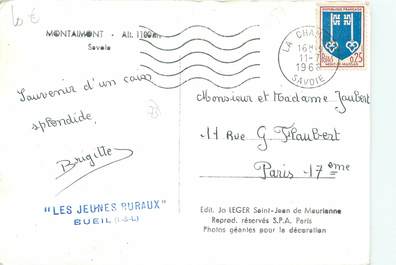 10 €
MONTAIMONT - Alt. 1100 m.
Savoie
LA CHAM
16H
11-7
1966
SAVOIE
REPUBLIQUE FRANCAISE
0,25
MONT-DE-MARSAN
Souvenir d'un coin
splendide.
Brigitte
73
Monsieur et Madame Jaubert
11 Rue G. Flaubert
Paris - 17 eme
"LES JEUNES RURAUX"
BUEIL (I-&-L)
Edit. Jo LEGER Saint-Jean de Maurienne
Reprod. réservés S.P.A. Paris
Photos géantes pour la décoration